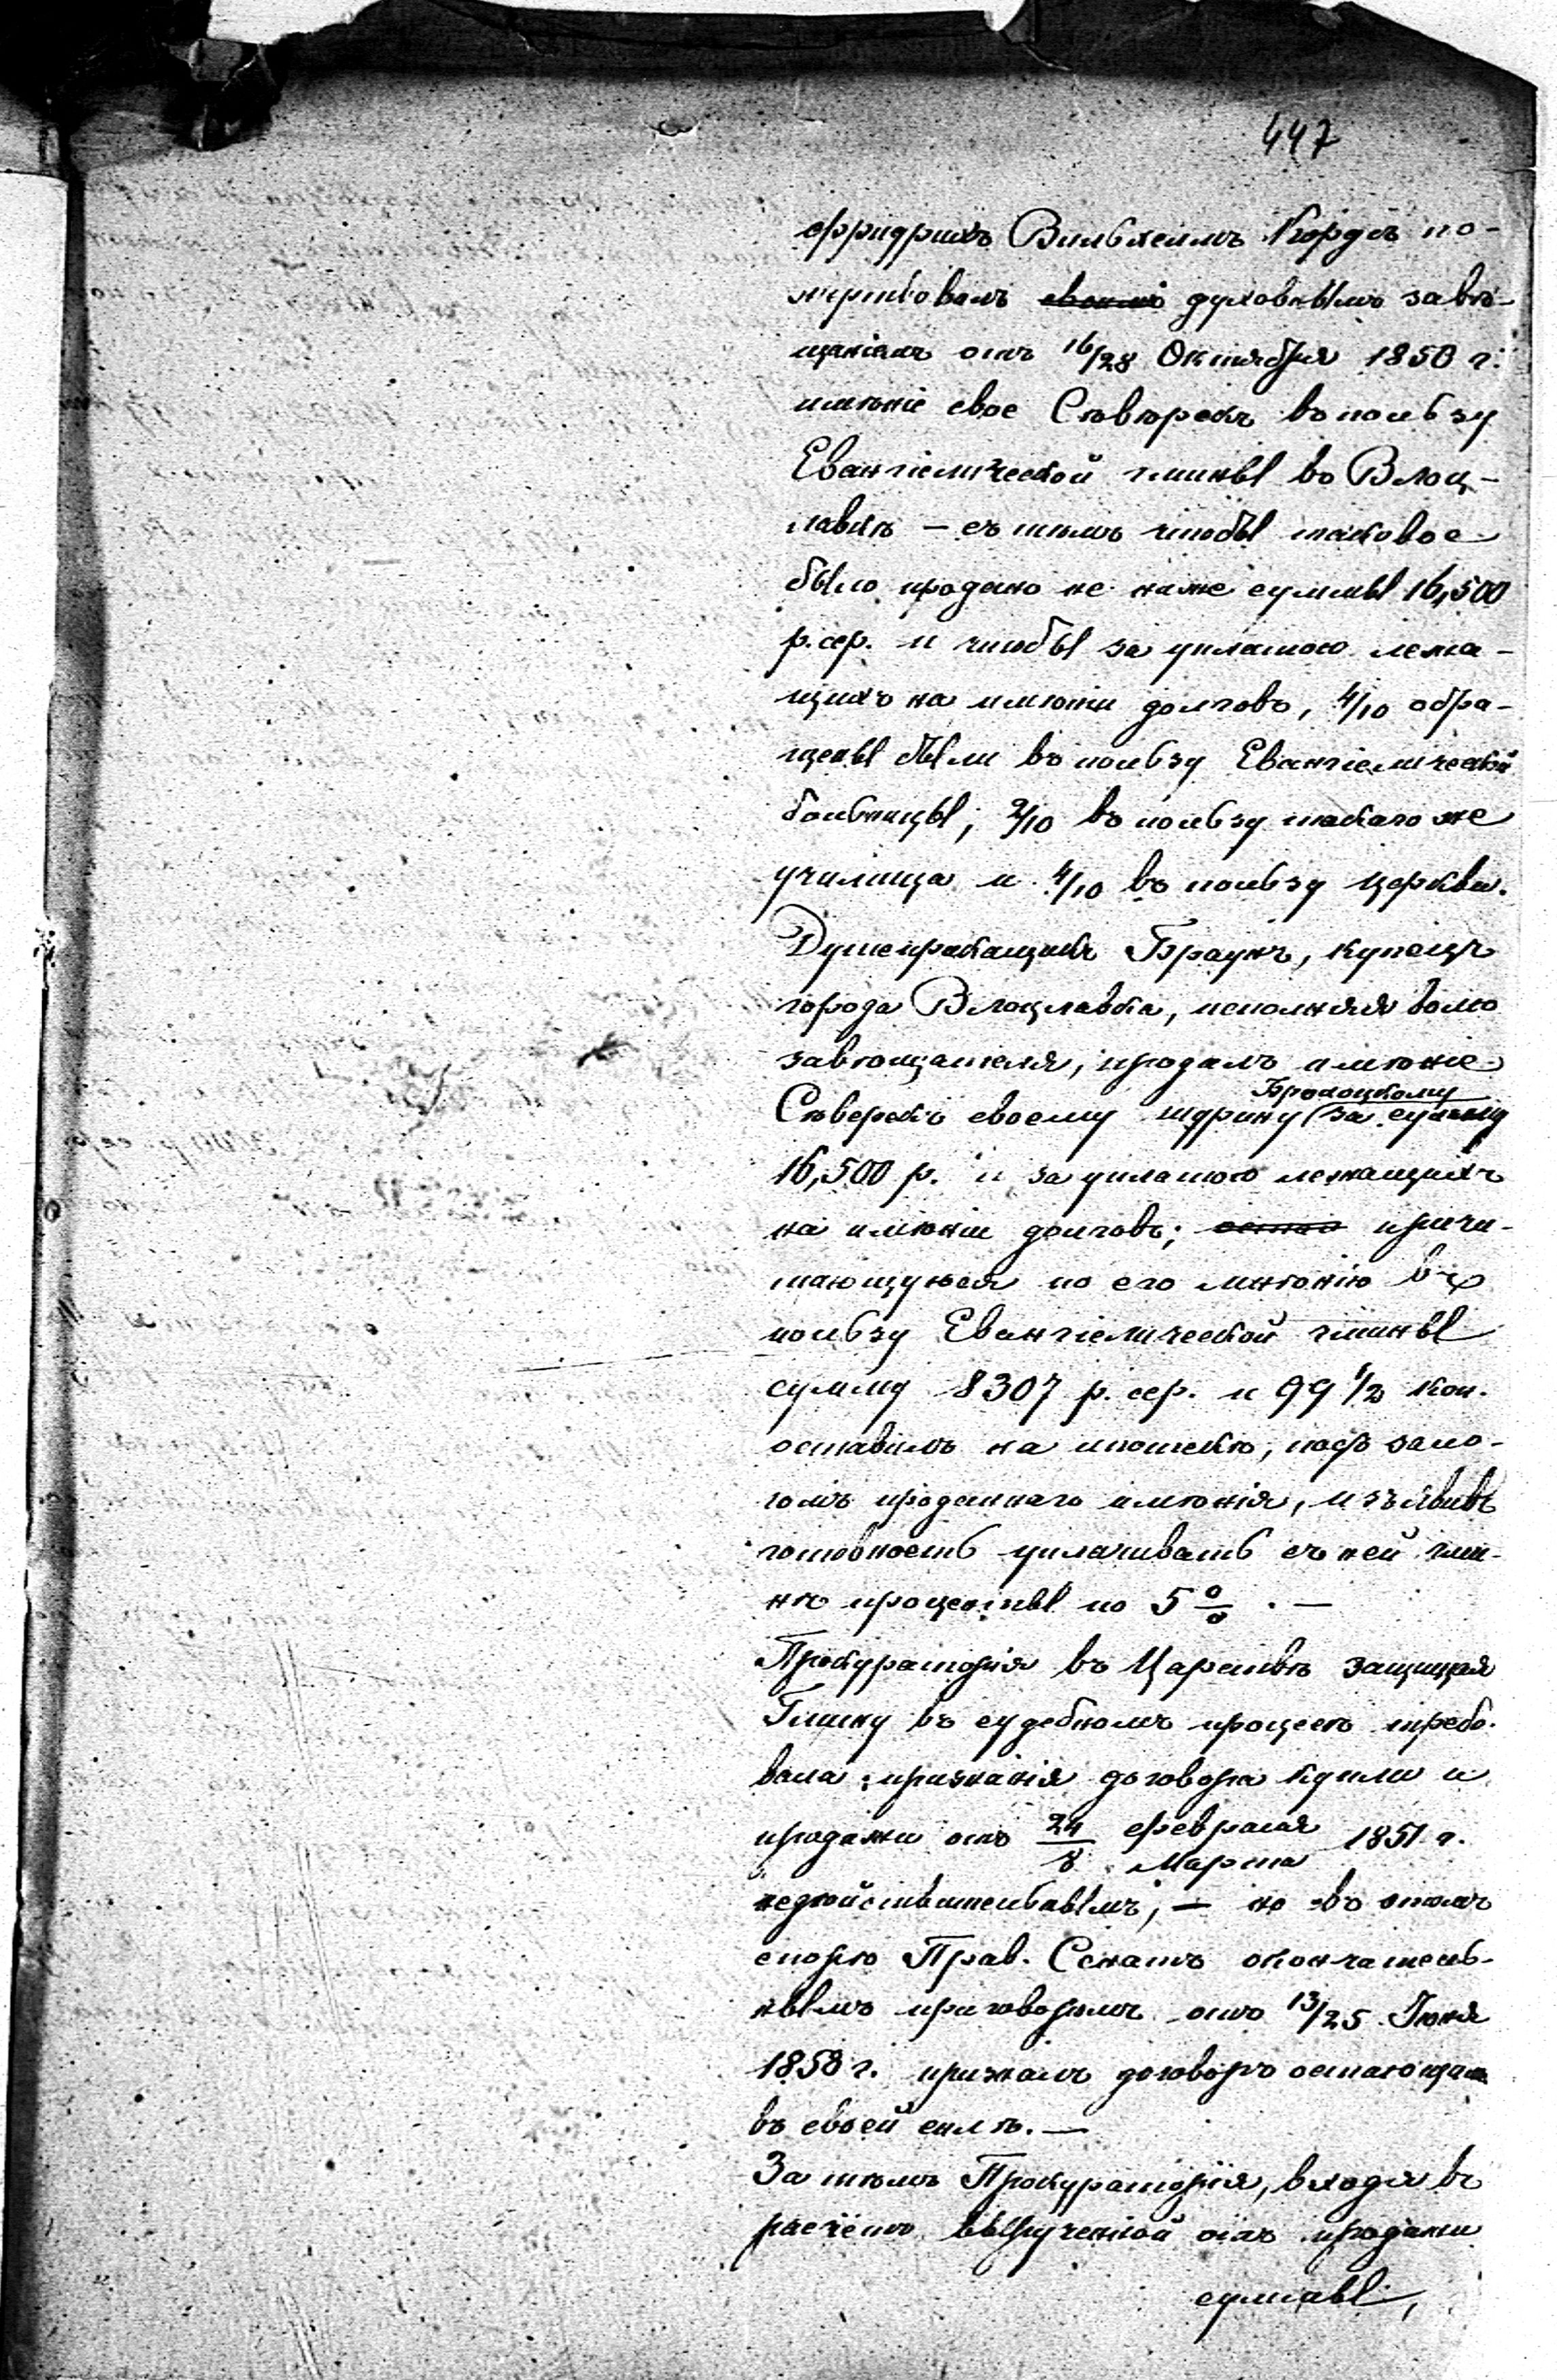 447
Фридрихъ Вильгельмъ Кордъ по-
жертвовалъ своимъ духовнымъ завѣ-
щаніемъ отъ 16/28 Октября 1850 г.
имѣніе свое Сѣверскъ въ пользу
Евангелической гмины въ Влоц-
лавкѣ — съ тѣмъ чтобы таковое
было продано не ниже суммы 16,500
р. сер. и чтобы за уплатою лежа-
щихъ на имѣніи долговъ, 4/10 обра-
щены были въ пользу Евангелической
больницы; 2/10 въ пользу такаго же
училища и 4/10 въ пользу церкви.
Душеприкащикъ Браунъ, купецъ
города Влоцлавка, исполняя волю
завѣщателя, продалъ имѣніе
Сѣверскъ своему шурину Броноцкому за сумму
16,500 р. и за уплатою лежащихъ
на имѣніи долговъ; причи-
тающуюся по его мнѣнію въ
пользу Евангелической гмины
сумму 8307 р. сер. и 99 1/2 коп.
оставилъ на ипотекѣ, подъ зало-
гомъ проданнаго имѣнія, изъявивъ
готовность уплачивать съ ней гми-
нѣ проценты по 5 0/0. —
Прокураторія въ Царствѣ защищая
Гмину въ судебномъ процесѣ требо-
вала признанія договора купли и
продажи отъ 24 Февраля / 8 Марта 1851 г.
недѣйствительнымъ, — но въ этомъ
спорѣ Прав. Сенатъ окончатель-
нымъ приговоромъ отъ 13/25 Іюня
1858 г. призналъ договоръ остающимся
въ своей силѣ. —
За тѣмъ Прокураторія, входя въ
расчетъ вырученной отъ продажи
суммы,